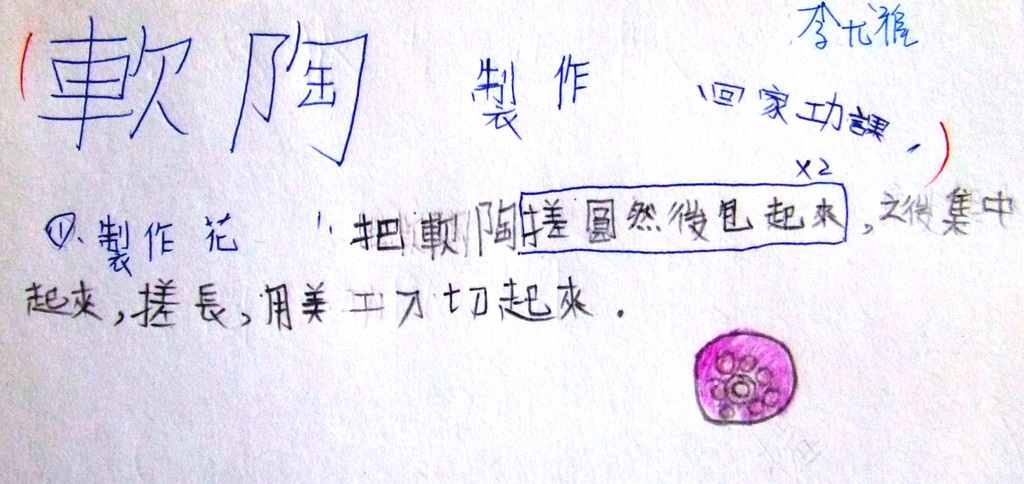 李尤雅
軟陶 製作 (回家功課.)
x2
①、製作花：把軟陶搓圓然後包起來,之後集中
起來,搓長,用美工刀切起來.